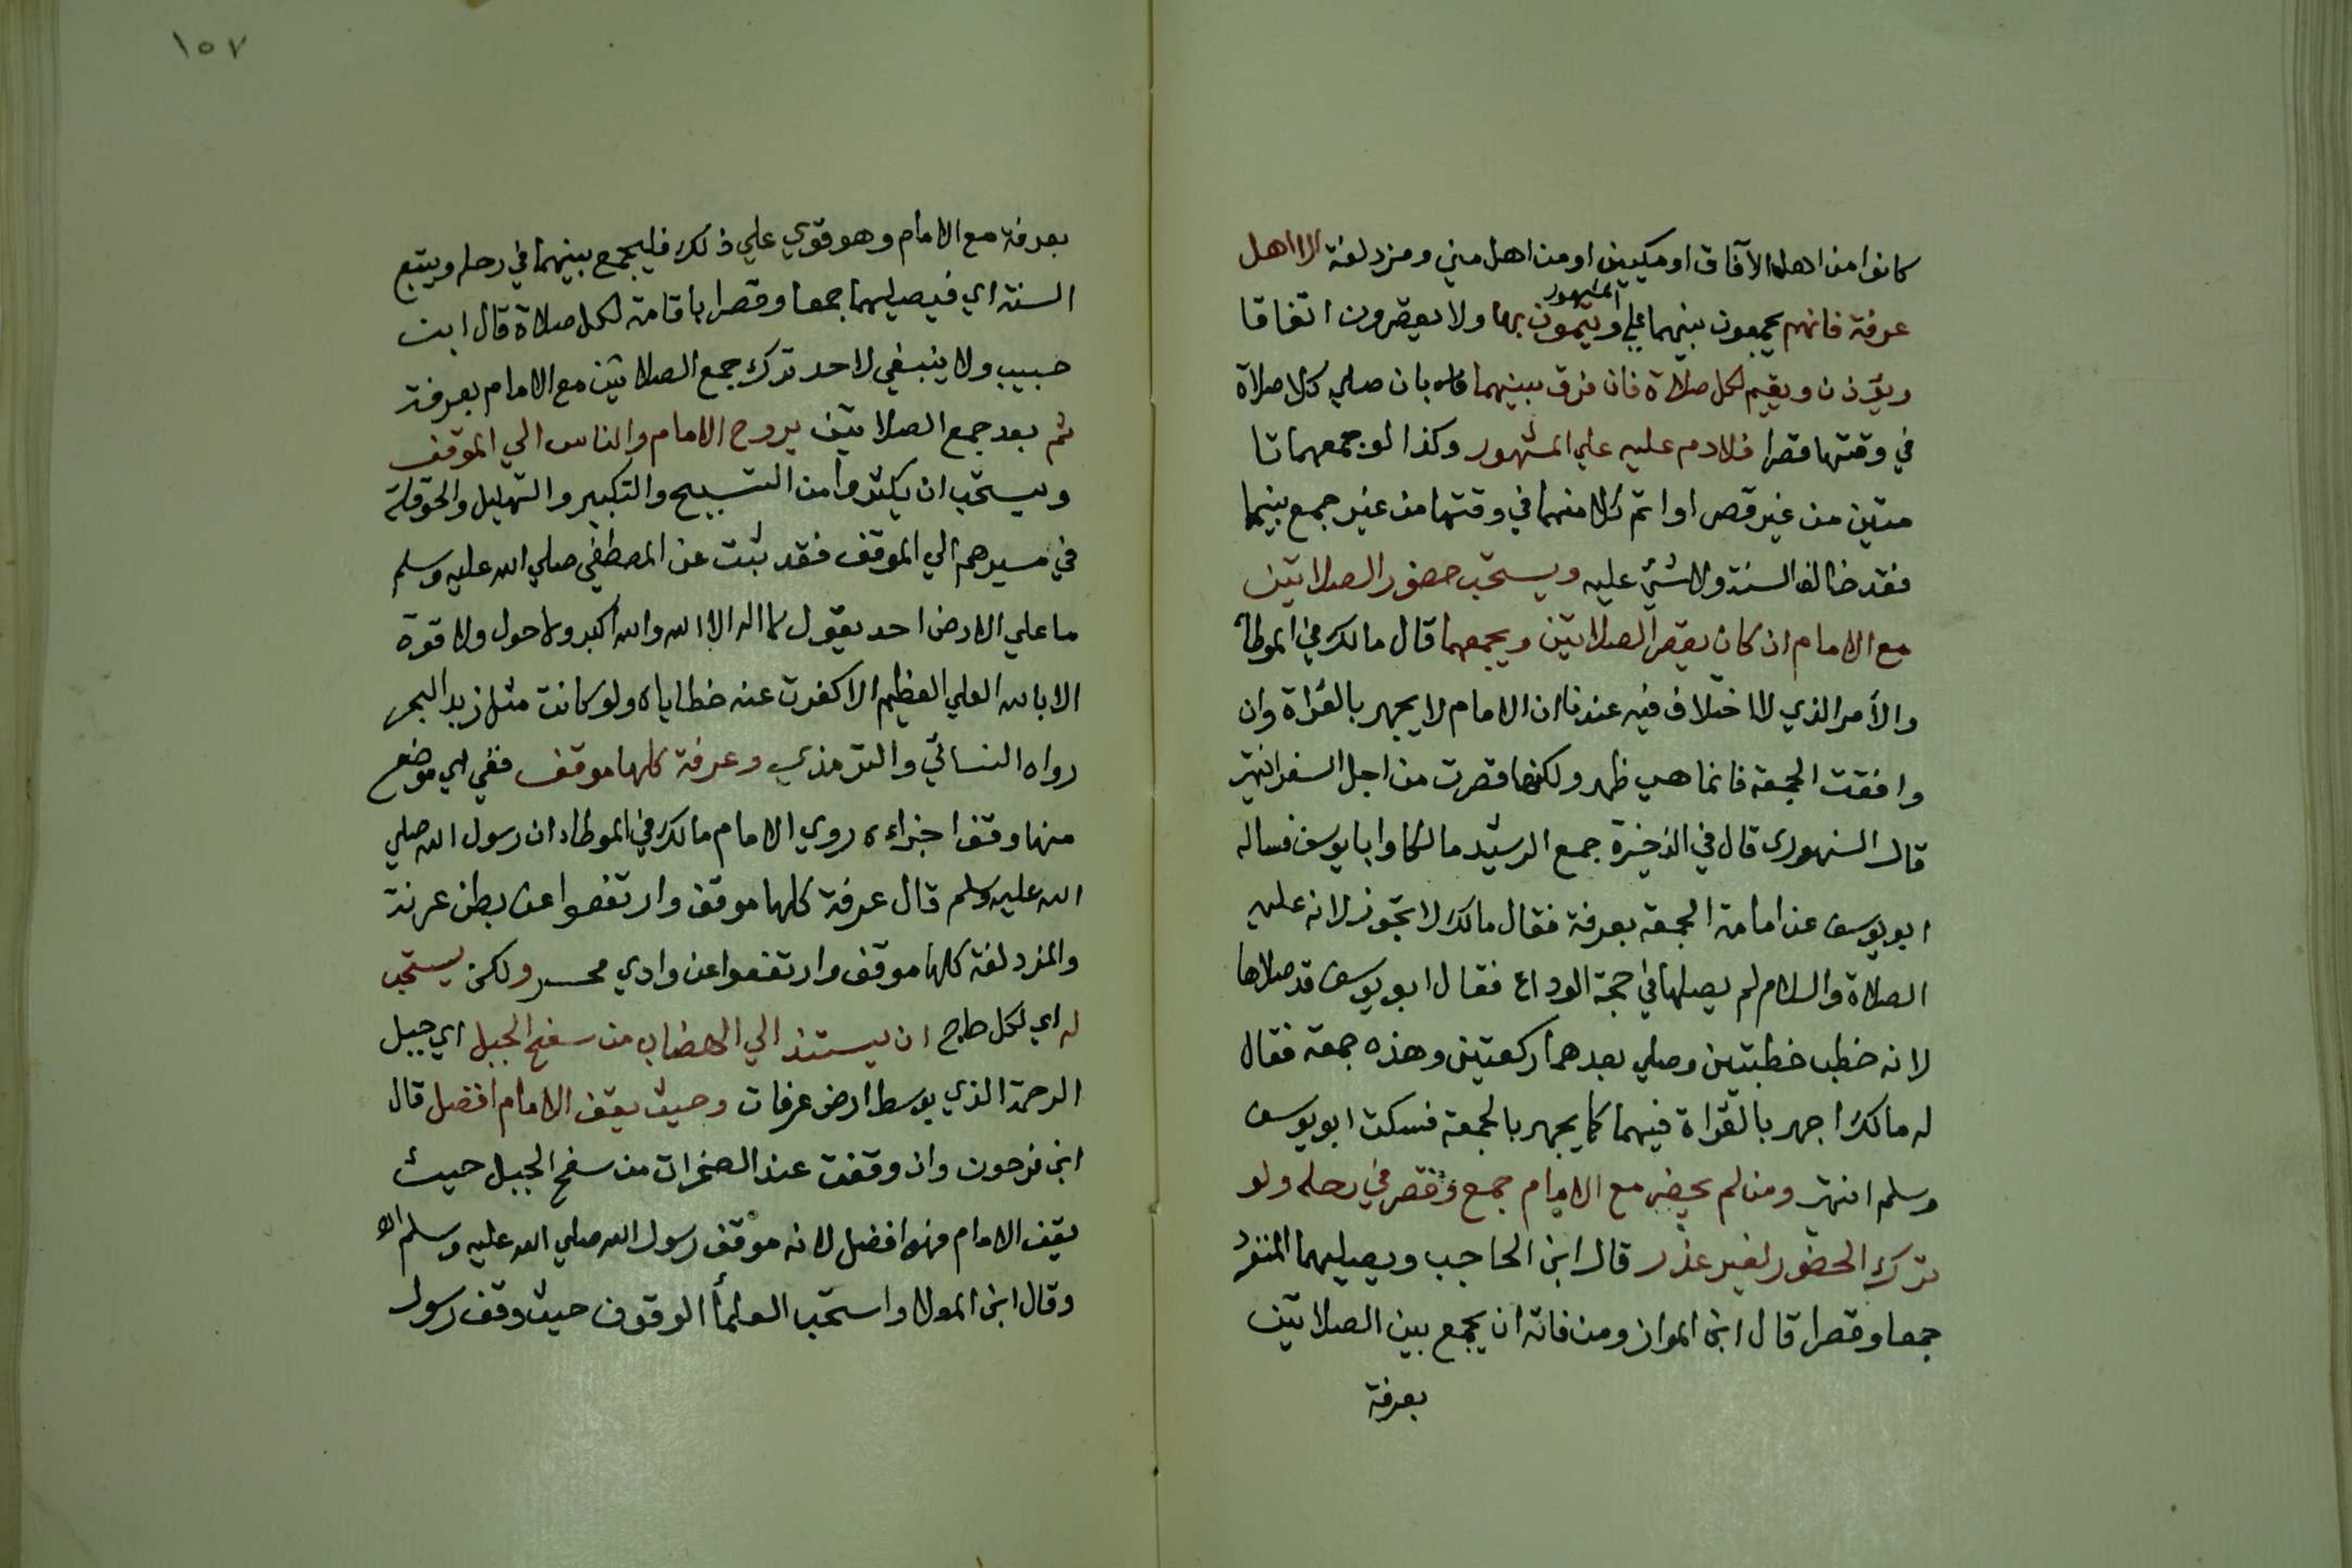 كانوا من اهل الآفاق او مكيين او من اهل مني ومزدلفة الا اهل
عرفة فانهم يجمعون بينهما علي المشهور ويتمون بها ولا يقصرون اتفاقا
ويؤذن ويقيم لكل صلاة فان فرق بينهما بان صلي كلا صلاة
في وقتها قصرا فلا دم عليه علي المشهور وكذا لو جمعهما تا
متين من غير قصر او اتم كلا منهما في وقتها من غير جمع بينهما
فقد خالف السنة ولا شئ عليه ويستحب حضور الصلاتين
مع الامام ان كان يقصر الصلاتين ويجمعهما قال مالك في الموطا
والأمر الذي لا اختلاف فيه عندنا ان الامام لا يجهر بالقراة وان
وافقت الجمعة فانما هي ظهر ولكنها قصرت من اجل السفر انتهي
قال السنهوري قال في الذخيرة جمع الرشيد مالكا وابا يوسف فساله
ابو يوسف عن امامة الجمعة بعرفة فقال مالك لا تجوز لانه عليه
الصلاة والسلام لم يصلها في حجة الوداع فقال ابو يوسف قد صلاها
لانه خطب خطبتين وصلي بعدهما ركعتين وهذه جمعة فقال
له مالك اجهر بالقراة فيهما كما يجهر بالجمعة فسكت ابو يوسف
وسلم انتهي ومن لم يحضر مع الامام جمع وقصر في رحله ولو
ترك الحضور لغير عذر قال ابن الحاجب ويصليهما المنفرد
جمعا وقصرا قال ابن المواز ومن فاته ان يجمع بين الصلاتين
بعرفة
١٥٧
بعرفة مع الامام وهو قوي علي ذلك فليجمع بينهما في رحله ويتبع
السنة اي فيصليهما جمعا وقصرا باقامة لكل صلاة قال ابن
حبيب ولا ينبغي لاحد ترك جمع الصلاتين مع الامام بعرفة
ثم بعد جمع الصلاتين يروح الامام والناس الي الموقف
ويستحب ان يكثروا من التسبيح والتكبير والتهليل والحوقلة
في مسيرهم الي الموقف فقد ثبت عن المصطفي صلي الله عليه وسلم
ما علي الارض احد يقول لا اله الا الله والله اكبر ولا حول ولا قوة
الا بالله العلي العظيم الا كفرت عنه خطاياه ولو كانت مثل زبد البحر
رواه النسائي والترمذي وعرفة كلها موقف ففي اي موضع
منها وقف اجزاءه روي الامام مالك في الموطاء ان رسول الله صلي
الله عليه وسلم قال عرفة كلها موقف وارتفعوا عن بطن عرنة
والمزدلفة كلها موقف وارتفعوا عن وادي محسر ولكن يستحب
له اي لكل حاج ان يستند الي الهضاب من سفح الجبل اي جبل
الرحمة الذي بوسط ارض عرفات وحيث يقف الامام افضل قال
ابن فرحون وان وقفت عند الصخرات من سفح الجبل حيث
يقف الامام فهو افضل لانه موقف رسول الله صلي الله عليه وسلم اه
وقال ابن المولا واستحب العلمأ الوقوف حيث وقف رسول